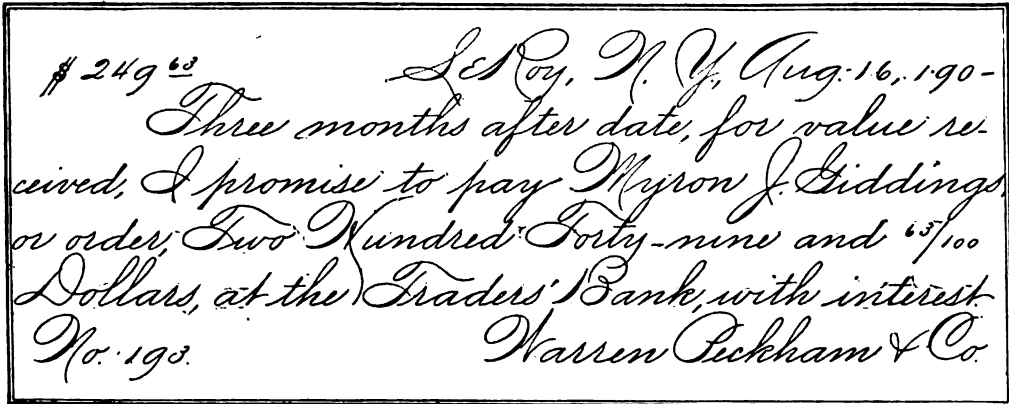 $ 249 63 LeRoy, N. Y., Aug. 16, 190-
Three months after date, for value re-
ceived, I promise to pay Myron J. Giddings,
or order, Two Hundred Forty-nine and 63/100
Dollars, at the Traders' Bank, with interest.
No. 193. Warren Peckham & Co.